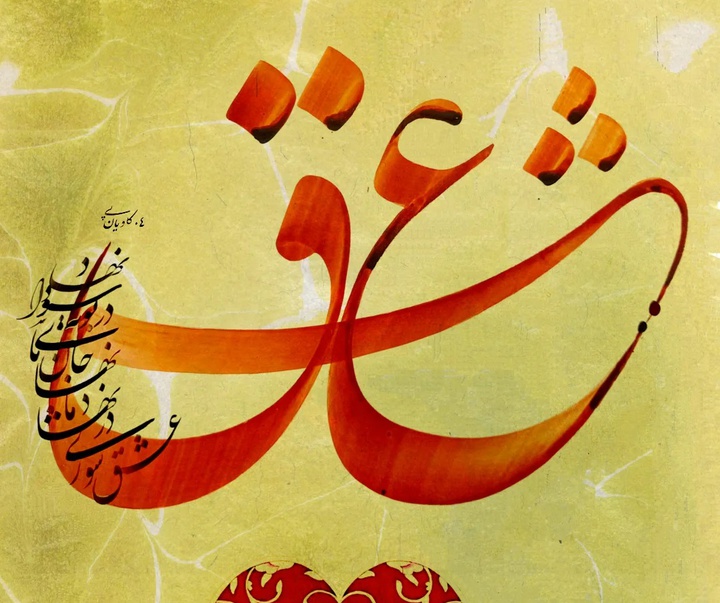 عشق
کاویان
عشق شوری
در نهاد ما
نهاد
جان ما
در بوته
سودا
نهاد